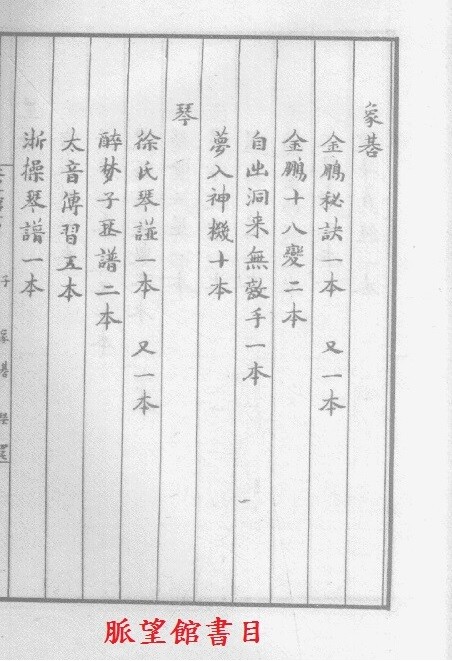 象棊
金鵬秘訣一本 又一本
金鵬十八變二本
自出洞來無敵手一本
夢入神機十本
琴
徐氏琴譜一本 又一本
醉梦子琴譜二本
太音傳習五本
浙操琴譜一本
子 象棊 琴
脈望館書目